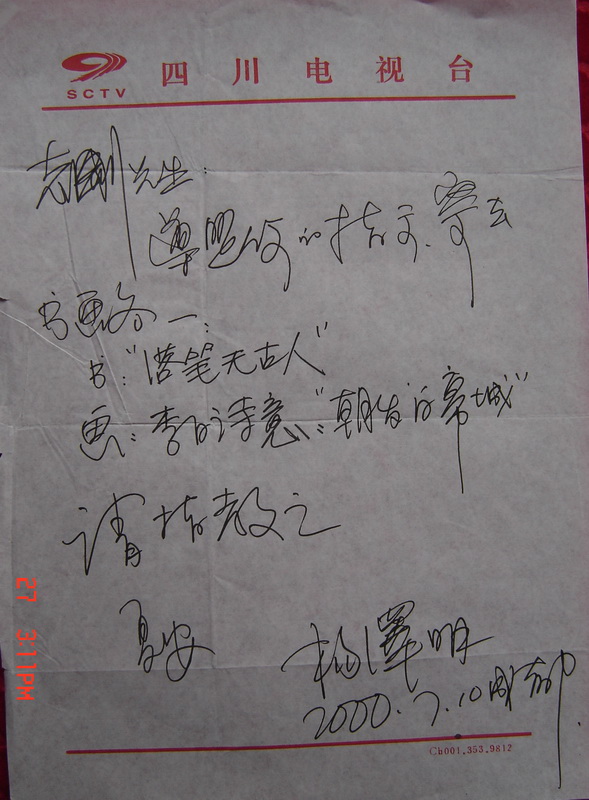 SCTV 四川电视台
志刚先生：
遵照你的指示、寄去
书画各一：
书：“落笔无古人”
画：李白诗意：“朝发白帝城”
请指教之
夏安
杨泽明
2000.7.10
Ch001.353.9812
27 3:11PM